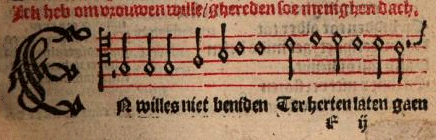 Ick heb om vrouwen wille/ ghereden soe menighen dach.
EN willes niet beniden Ter herten laten gaen
F ij